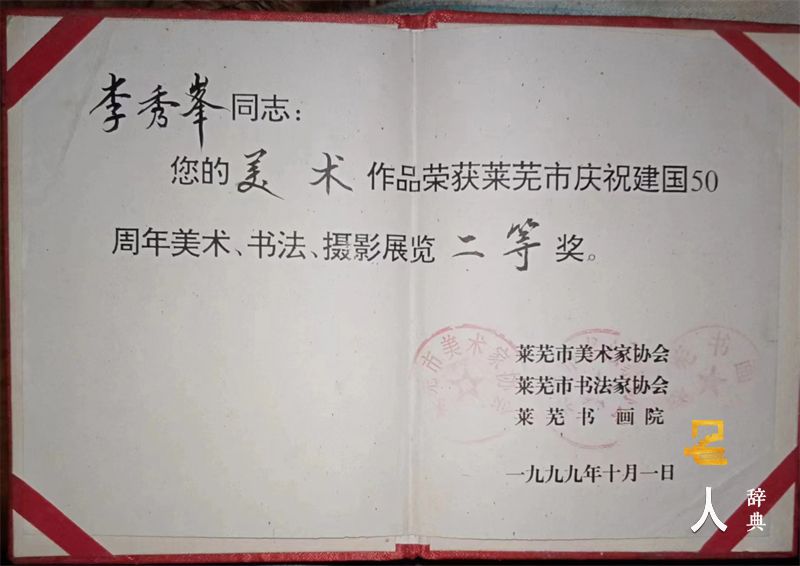 李秀峯同志：
您的美术作品荣获莱芜市庆祝建国50
周年美术、书法、摄影展览二等奖。
莱芜市美术家协会
莱芜市书法家协会
莱芜书画院
一九九九年十月一日
名人辞典